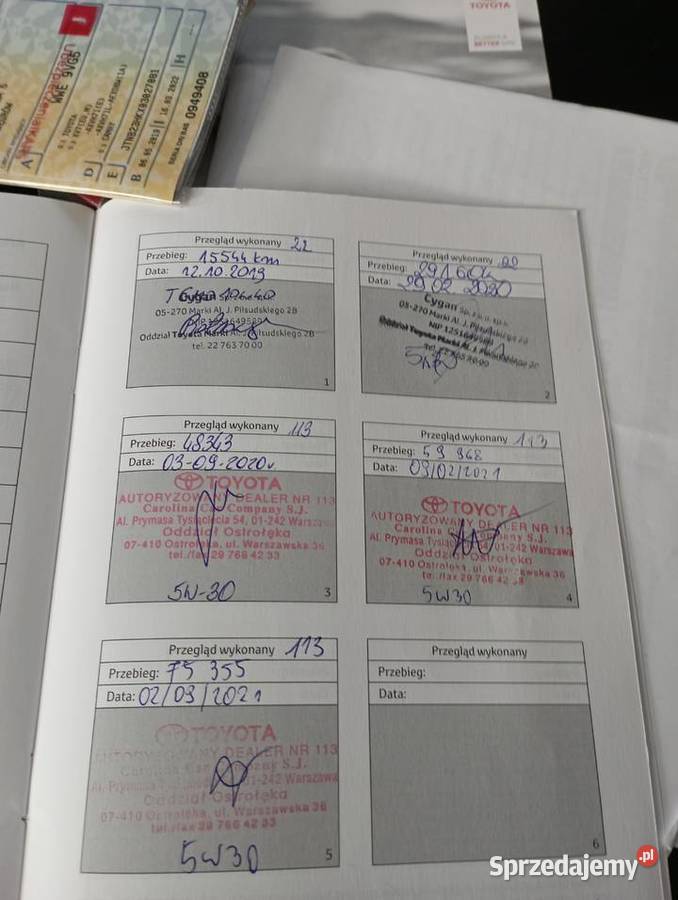 TOYOTA
WWE 9VG5
A
D
E
B
H
JTNB23HKX03027081
06.05.2019
16.03.2022
0949408
Przegląd wykonany 22
Przebieg: 15544 km
Data: 12.10.2019
Cygan
05-270 Marki Al. J. Piłsudskiego 2B
Oddział Toyota Marki Al. J. Piłsudskiego 2B
tel. 22 763 70 00
1
Przegląd wykonany 22
Przebieg: 29160k
Data: 20 02. 2020
Cygan Sp. z o.o. sp.k.
05-270 Marki Al. J. Piłsudskiego 2B
NIP 1251649589
Oddział Toyota Marki Al. J. Piłsudskiego 2B
2
Przegląd wykonany 113
Przebieg: 48343
Data: 03-09-2020r.
TOYOTA
AUTORYZOWANY DEALER NR 113
Carolina Car Company S.J.
Al. Prymasa Tysiąclecia 54, 01-242 Warszawa
Oddział Ostrołęka
07-410 Ostrołęka, ul. Warszawska 36
tel./fax 29 766 42 33
5W-30
3
Przegląd wykonany 113
Przebieg: 59 968
Data: 03/02/2021
TOYOTA
AUTORYZOWANY DEALER NR 113
Carolina Car Company S.J.
Al. Prymasa Tysiąclecia 54, 01-242 Warszawa
Oddział Ostrołęka
07-410 Ostrołęka, ul. Warszawska 36
tel./fax 29 766 42 33
5W30
4
Przegląd wykonany 113
Przebieg: 75 355
Data: 02/09/2021
TOYOTA
AUTORYZOWANY DEALER NR 113
Carolina Car Company S.J.
Al. Prymasa Tysiąclecia 54, 01-242 Warszawa
Oddział Ostrołęka
07-410 Ostrołęka, ul. Warszawska 36
tel./fax 29 766 42 33
5W30
5
Przegląd wykonany
Przebieg:
Data:
6
Sprzedajemy.pl